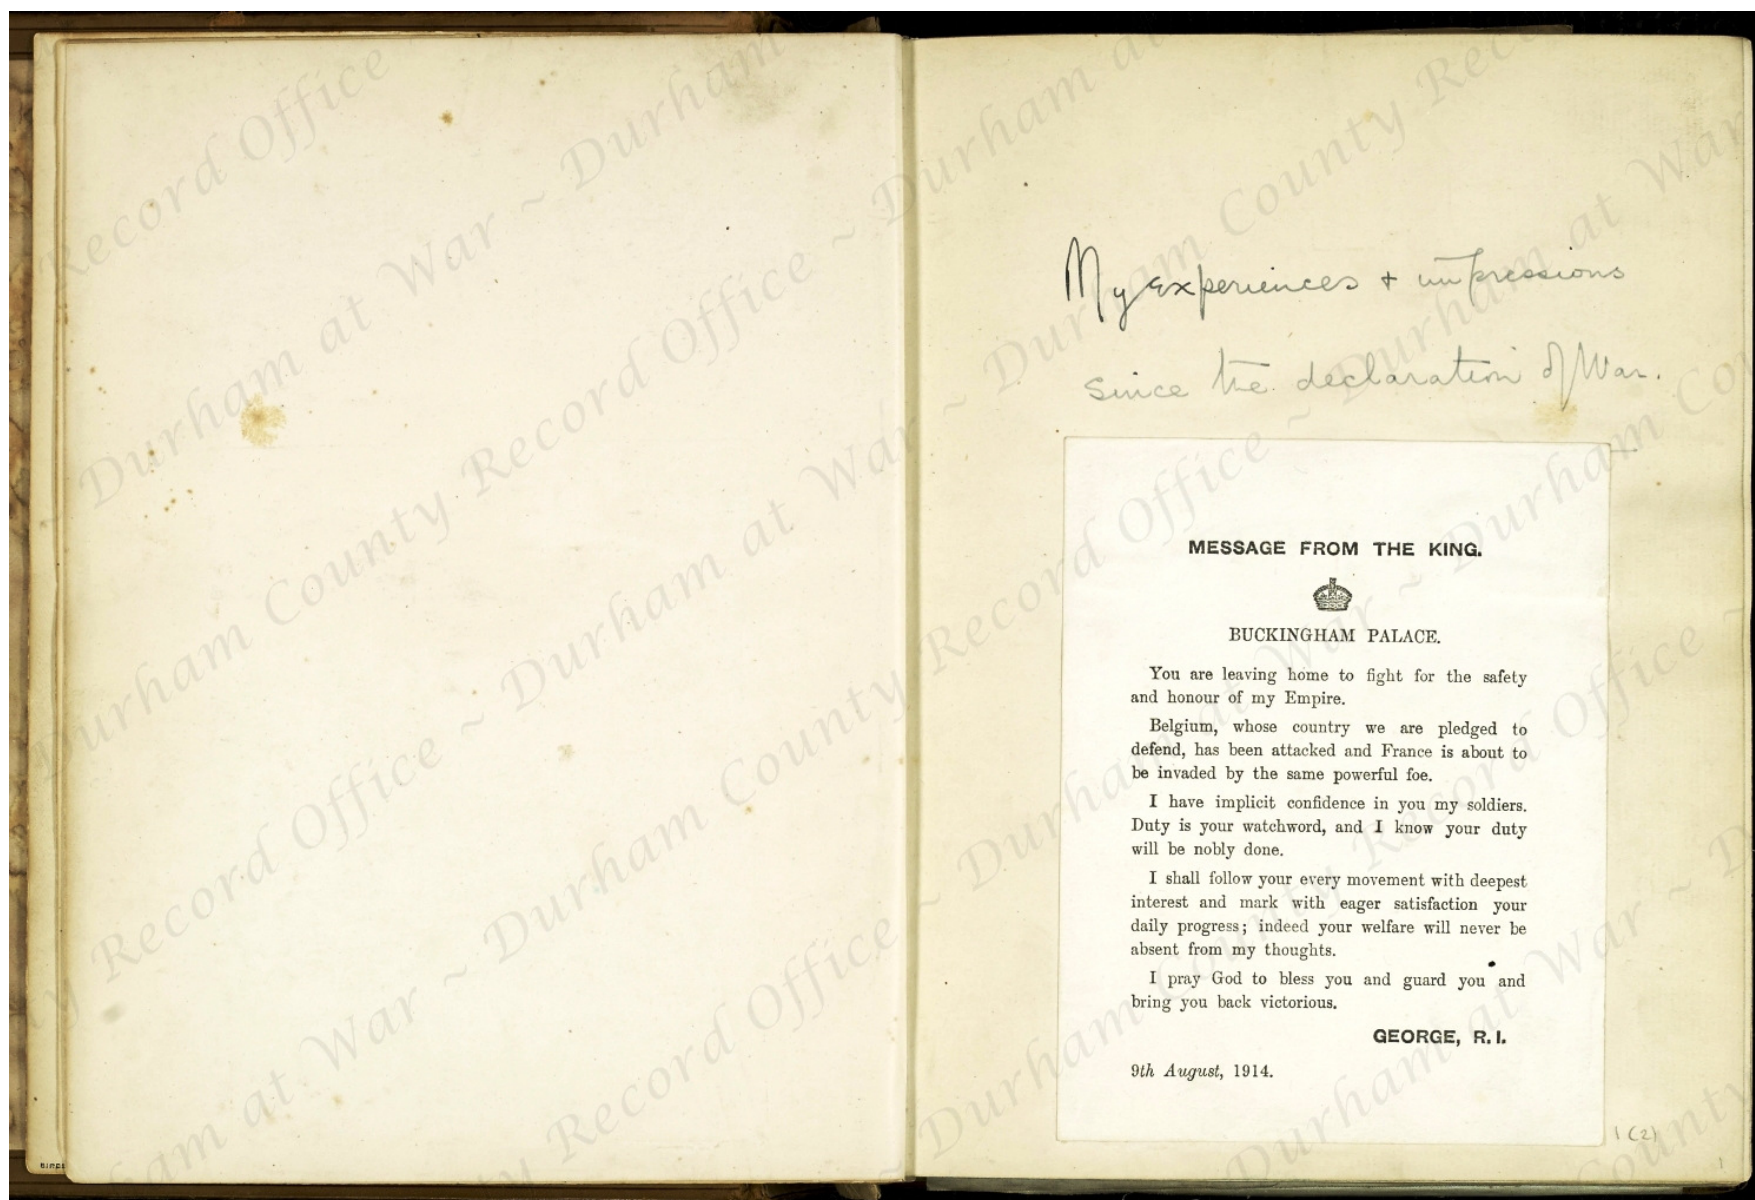 My experiences + impressions
since the declaration of War.
MESSAGE FROM THE KING.
BUCKINGHAM PALACE.
You are leaving home to fight for the safety
and honour of my Empire.
Belgium, whose country we are pledged to
defend, has been attacked and France is about to
be invaded by the same powerful foe.
I have implicit confidence in you my soldiers.
Duty is your watchword, and I know your duty
will be nobly done.
I shall follow your every movement with deepest
interest and mark with eager satisfaction your
daily progress; indeed your welfare will never be
absent from my thoughts.
I pray God to bless you and guard you and
bring you back victorious.
GEORGE, R.I.
9th August, 1914.
1 (2)
1
Durham County Record Office ~ Durham at War ~